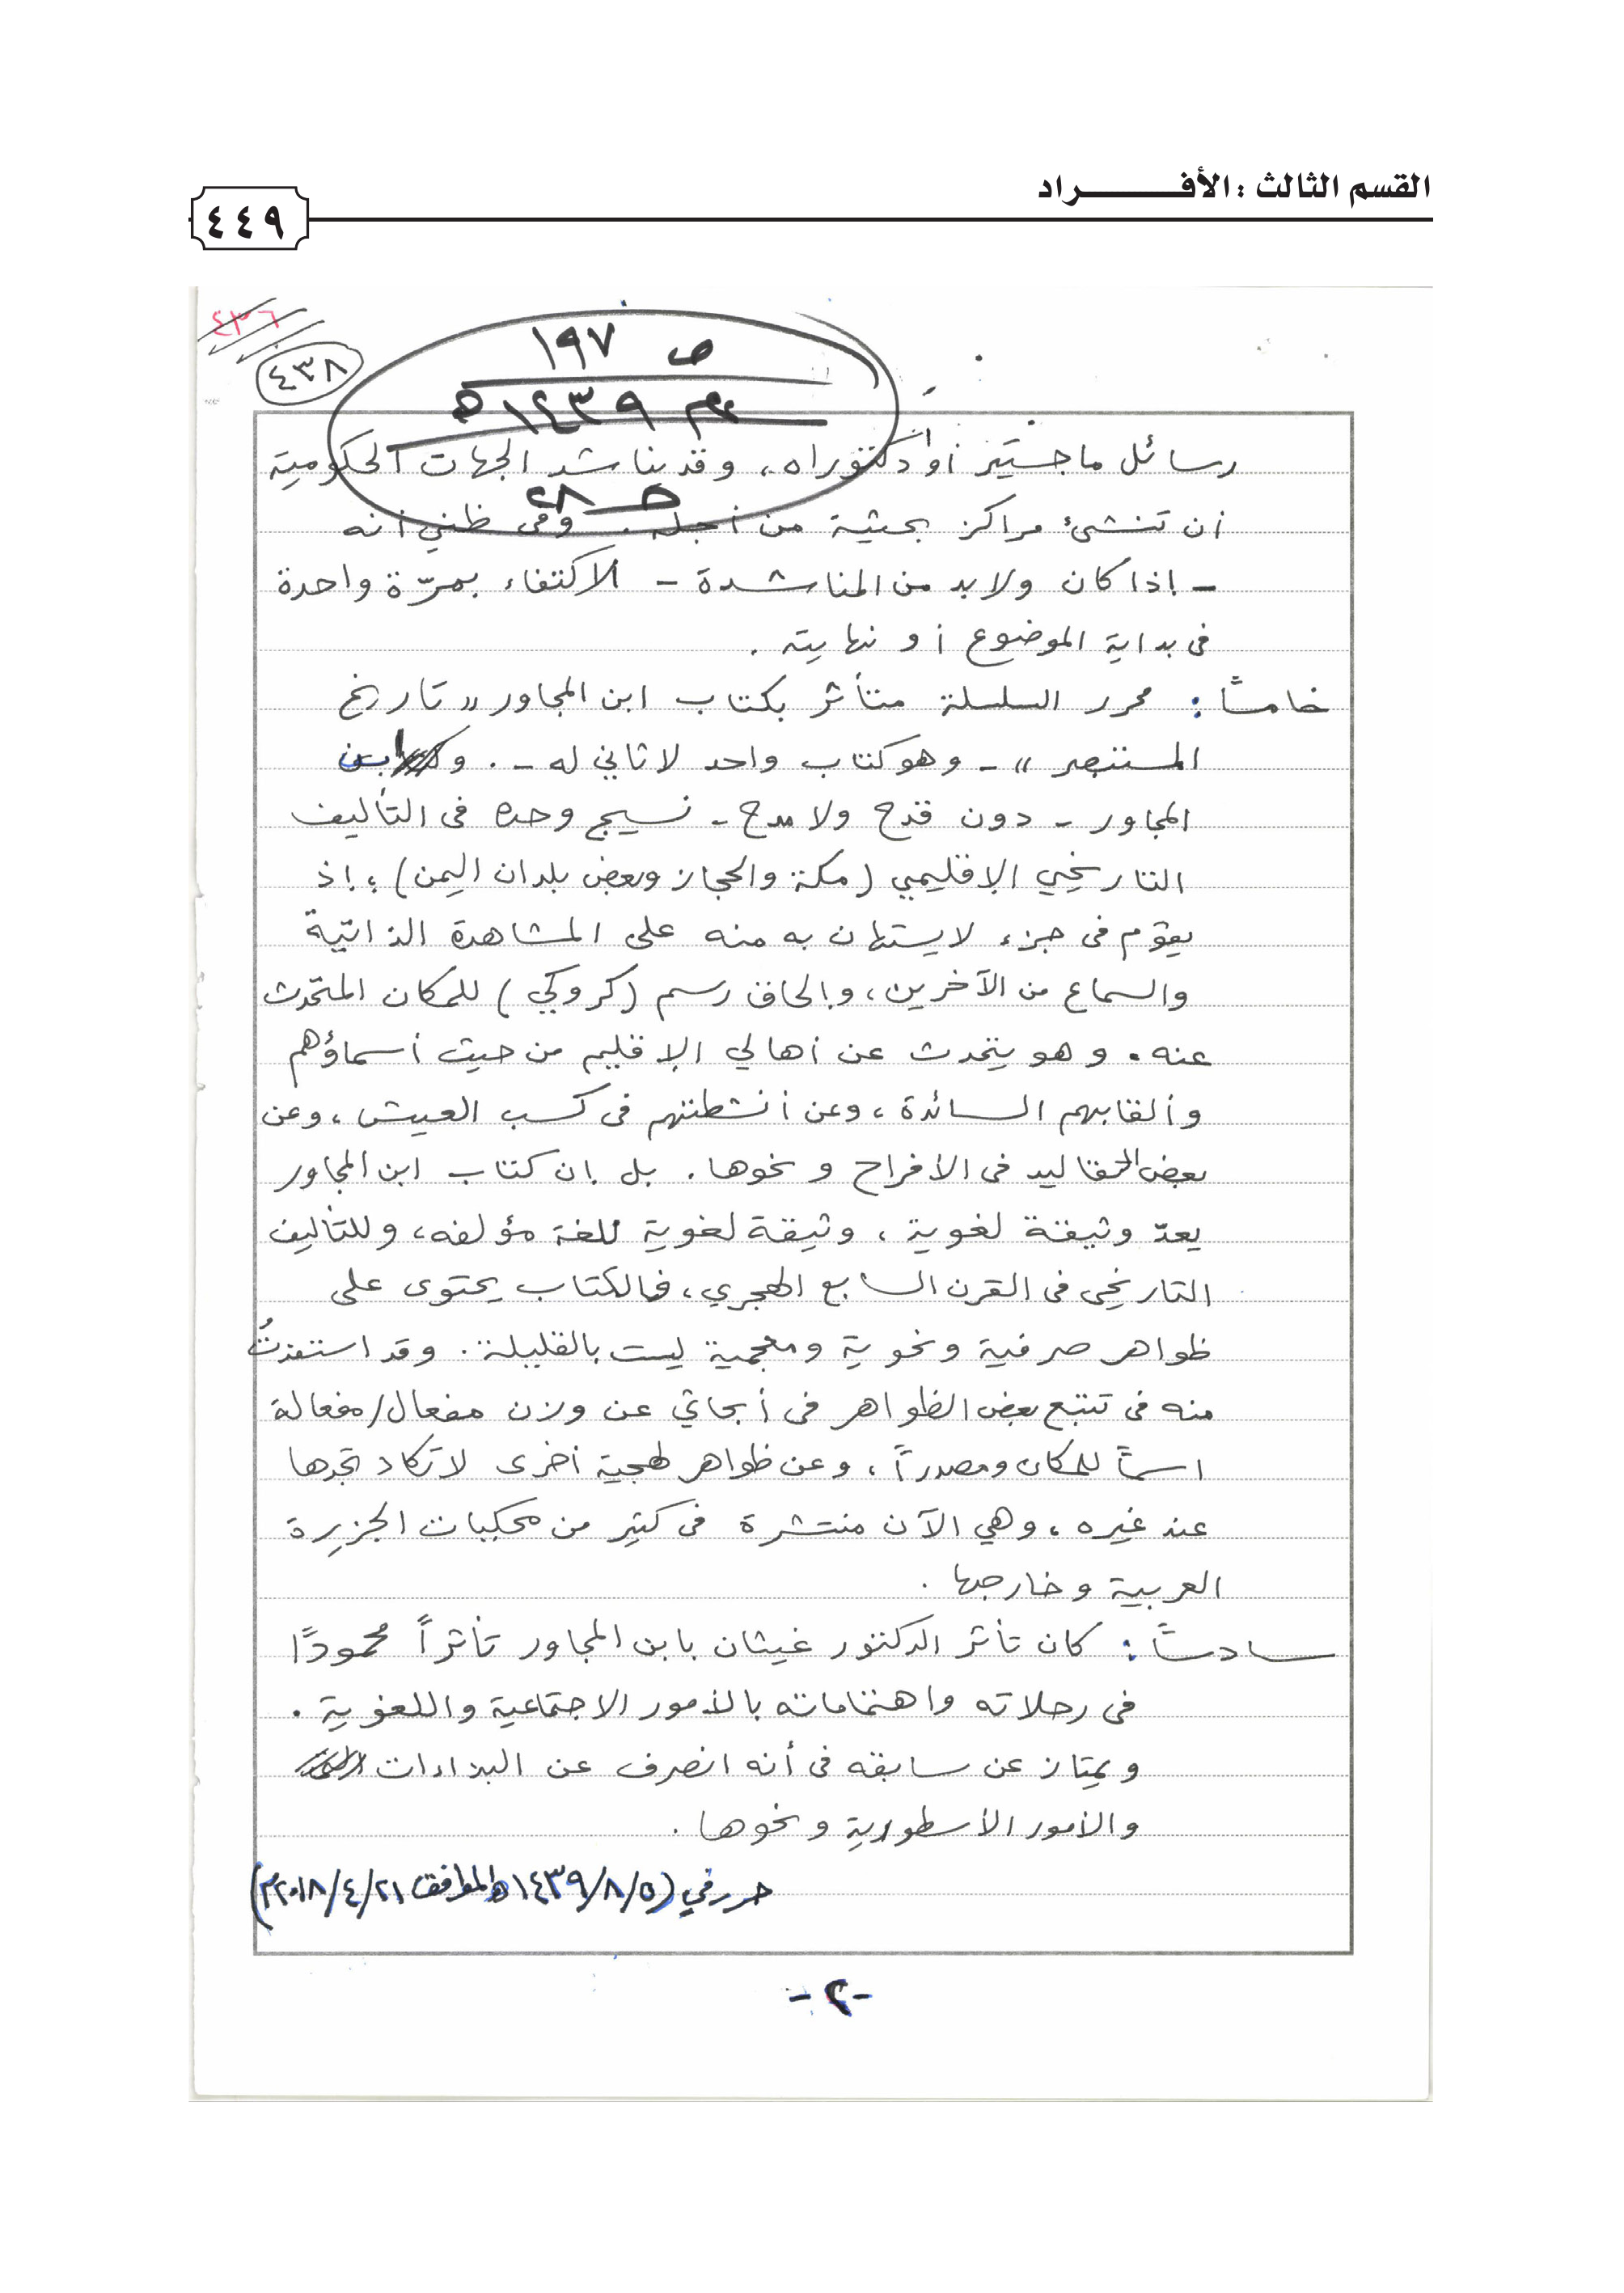 القسم الثالث : الأفـــــــــراد
٤٤٩
٤٣٦
٤٣٨
ص ١٩٧
١٤٣٩هـ
رسائل ماجستير أو دكتوراه، وقد يناشد الجهات الحكومية
أن تنشئ مراكز بحثية من أجله. وفى ظني أنه
- إذا كان ولا بد من المناشدة - الاكتفاء بمرّة واحدة
فى بداية الموضوع أو نهايته .
خامساً : محرر السلسلة متأثر بكتاب ابن المجاور "تاريخ
المستبصر" - وهو كتاب واحد لا ثاني له - . وابن
المجاور - دون قدح ولا مدح - نسيج وحده فى التأليف
التاريخي الإقليمي (مكة والحجاز وبعض بلدان اليمن) ؛ إذ
يقوّم فى جزء لا يستهان به منه على المشاهدة الذاتيّة
والسماع من الآخرين، وإلحاق رسم (كروكي) للمكان المتحّدث
عنه . وهو يتحدث عن أهالي الإقليم من حيث أسماؤهم
وألقابهم السائدة ، وعن أنشطتهم فى كسب العيش ، وعن
بعض التقاليد فى الأفراح ونحوها . بل إن كتاب ابن المجاور
يعدّ وثيقة لغوية ، وثيقة لغوية للغة مؤلفه ، وللتأليف
التاريخي فى القرن السابع الهجري ، فالكتاب يحتوى على
ظواهر صرفية ونحوية ومعجمية ليست بالقليلة . وقد استفدتُ
منه فى تتبع بعض الظواهر فى أبحاثي عن وزن مفعال/مفعالة
اسماً للمكان ومصدراً ، وعن ظواهر لهجية أخرى لا تكاد تجدها
عند غيره ، وهي الآن منتشرة فى كثير من محكيات الجزيرة
العربية وخارجها .
سادساً : كان تأثر الدكتور غيثان بابن المجاور تأثراً محمودًا
فى رحلاته واهتماماته بالأمور الاجتماعية واللغوية .
ويمتاز عن سابقه فى أنه انصرف عن البذاءات
والأمور الأسطورية ونحوها .
حرر في (١٤٣٩/٨/٥هـ الموافق ٢٠١٨/٤/٢١م)
-٢-